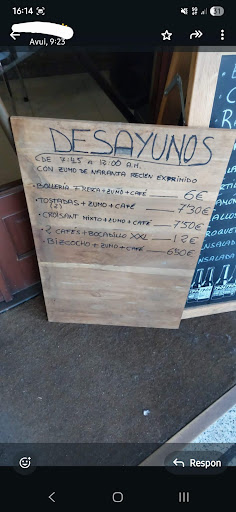 16:14
5G
31
Avui, 9:23
DESAYUNOS
(DE 7:45 A 13:00 A.M.
CON ZUMO DE NARANJA RECIEN EXPRIMIDO
• BOLLERIA + ZUMO + CAFÉ 6€
• TOSTADAS + ZUMO + CAFÉ 7'30€
(2)
• CROISANT MIXTO + ZUMO + CAFÉ 7'50€
• 2 CAFÉS + BOCADILLO XXL 12€
• BIZCOCHO + ZUMO + CAFÉ 6'50€
ENSALADA
Respon